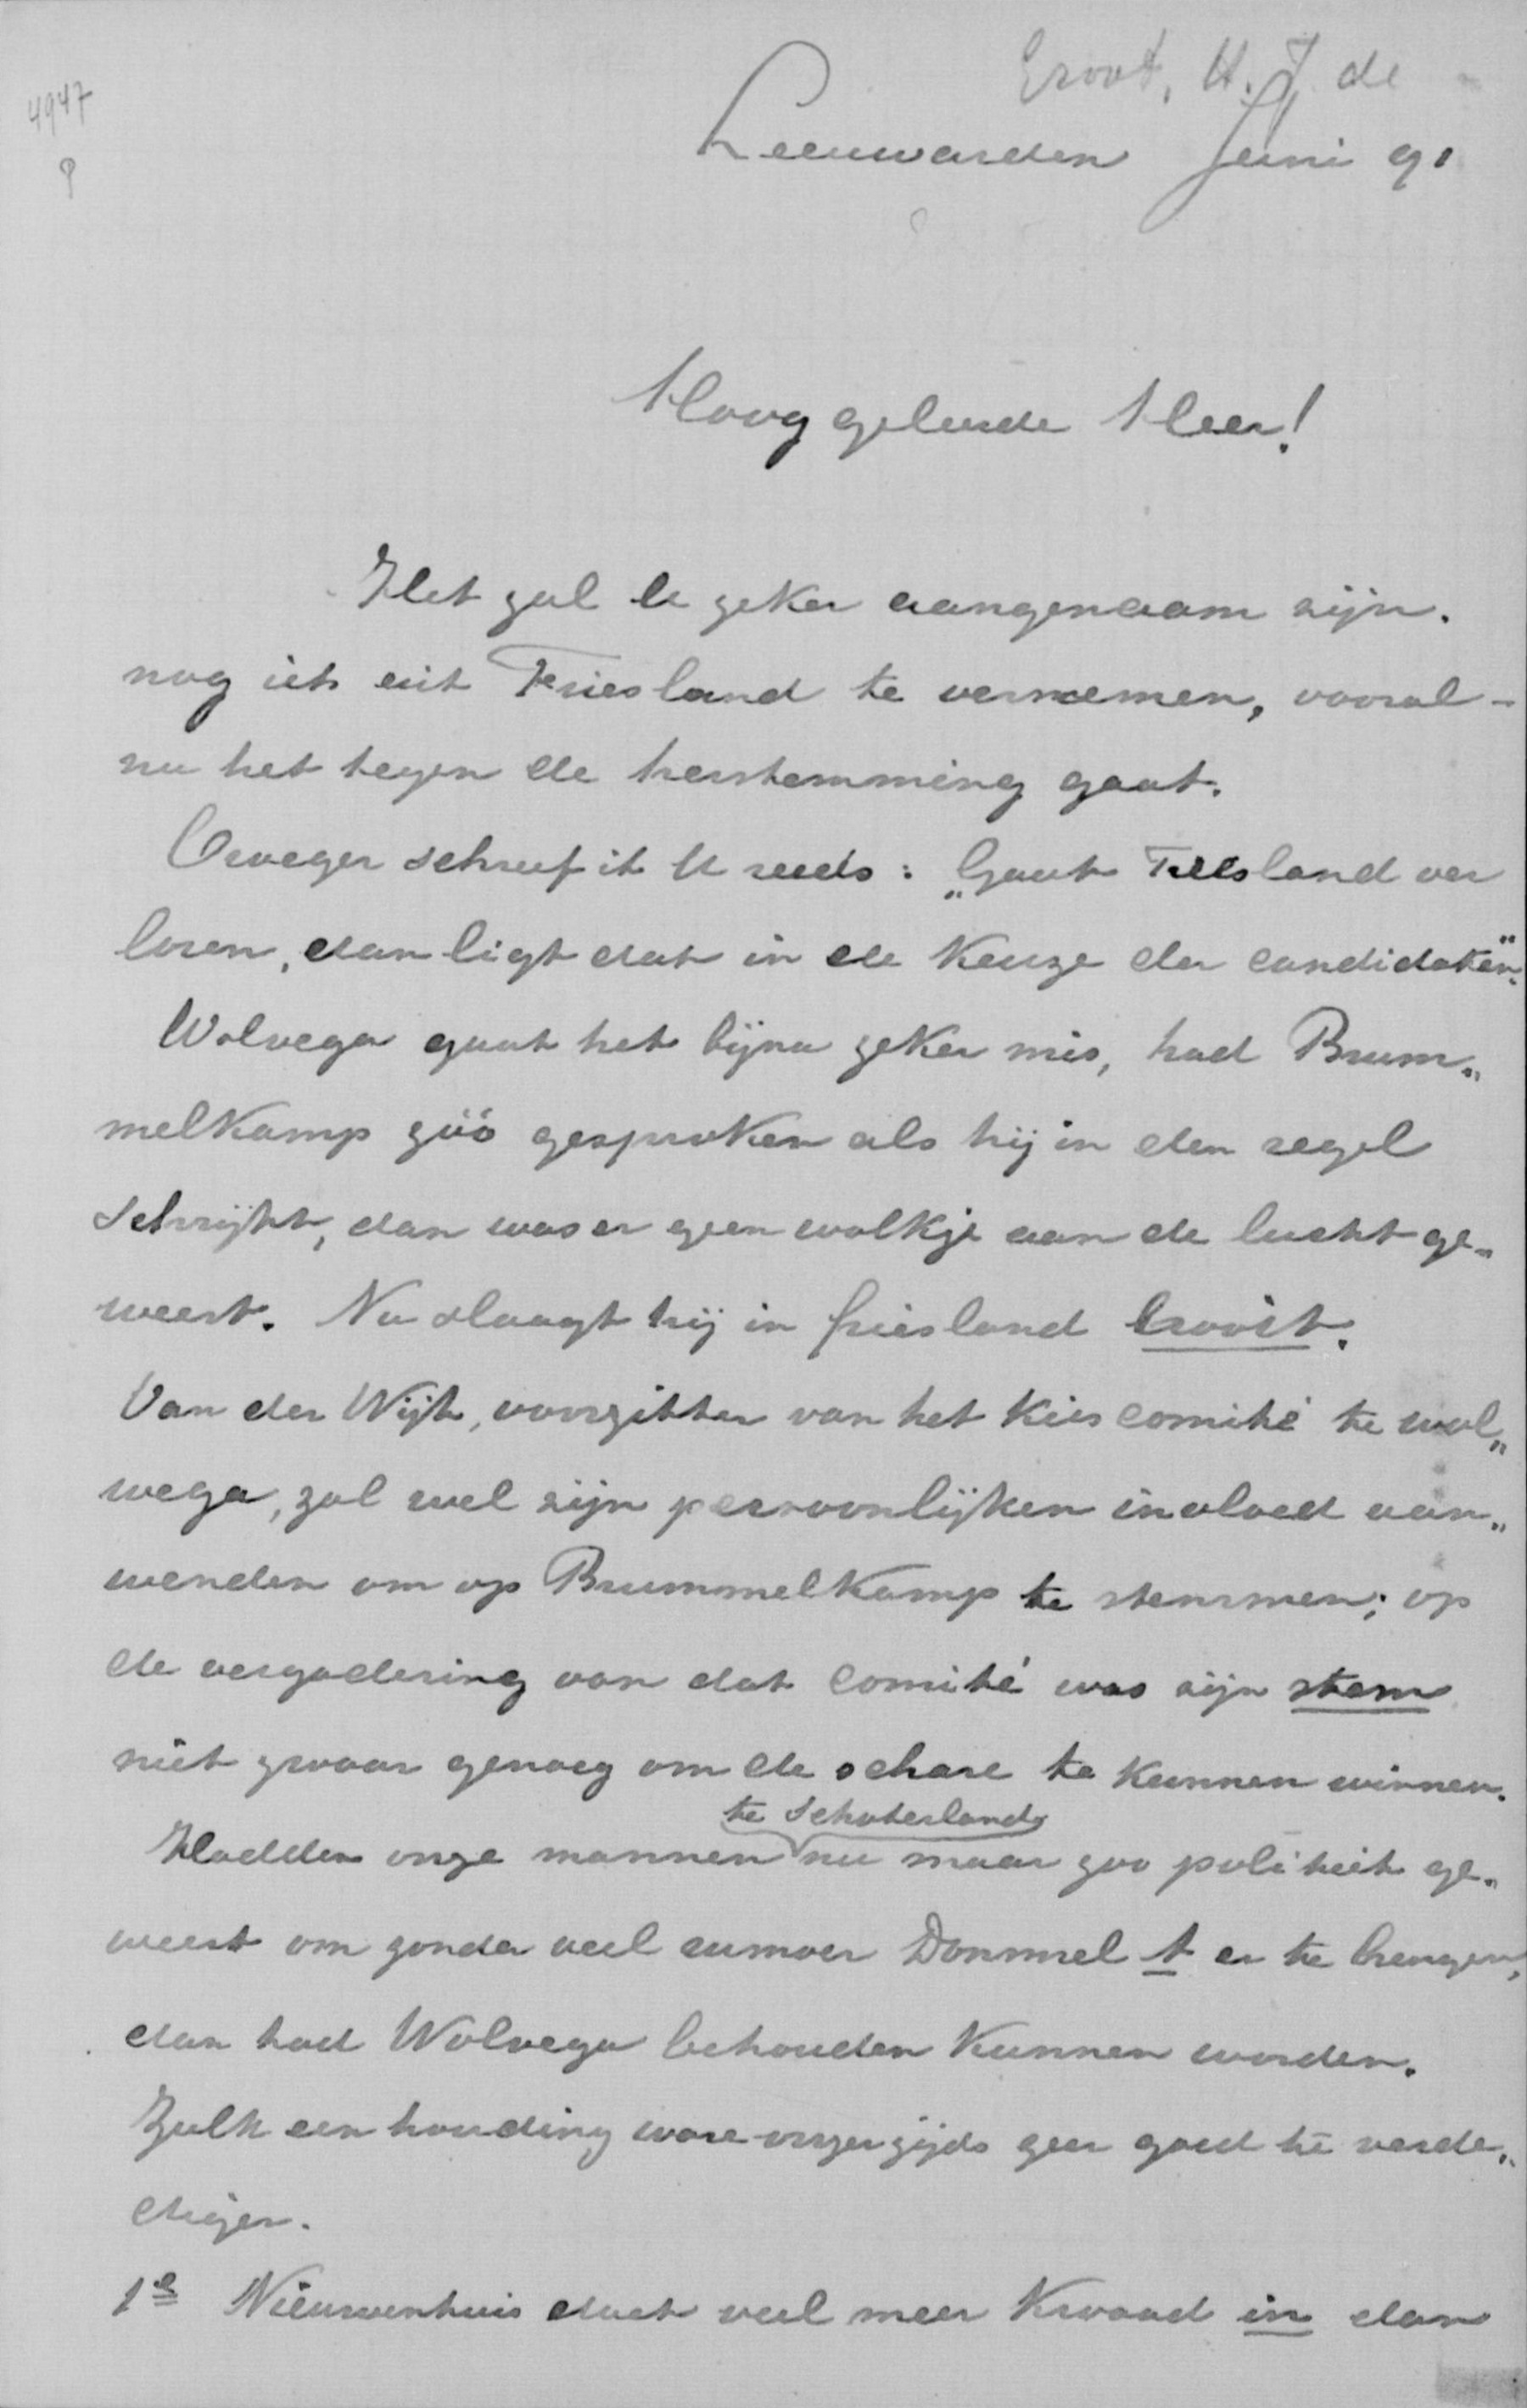 4947
Groot, H. J. de
Leeuwarden Juni 91
Hooggeleerde Heer!
Het zal U zeker aangenaam zijn.
nog iets uit Friesland te vernemen, vooral
nu het tegen de herstemming gaat.
Vroeger schreef ik U reeds: „Gaat Friesland ver
loren, dan ligt dat in de keuze der candidaten".
Wolvega gaat het bijna zeker mis, had Brum„
melkamp zóó gesproken als hij in den regel
schrijft, dan was er geen wolkje aan de lucht ge„
weest. Nu slaagt hij in friesland nooit.
Van der Wijk, voorzitter van het kiescomité te wol„
wega, zal wel zijn persoonlijken invloed aan„
wenden om op Brummelkamp te stemmen; op
de vergadering van dat comité was zijn stem
niet zwaar genoeg om de schare te kunnen winnen.
te Schoterland
Hadden onze mannen nu maar zoo politiek ge„
weest om zonder veel rumoer Dommel t er te brengen,
dan had Wolvega behouden kunnen worden.
Zulk een houding ware onzerzijds zeer goed te verde„
digen.
1e Nieuwenhuis doet veel meer kwaad in dan